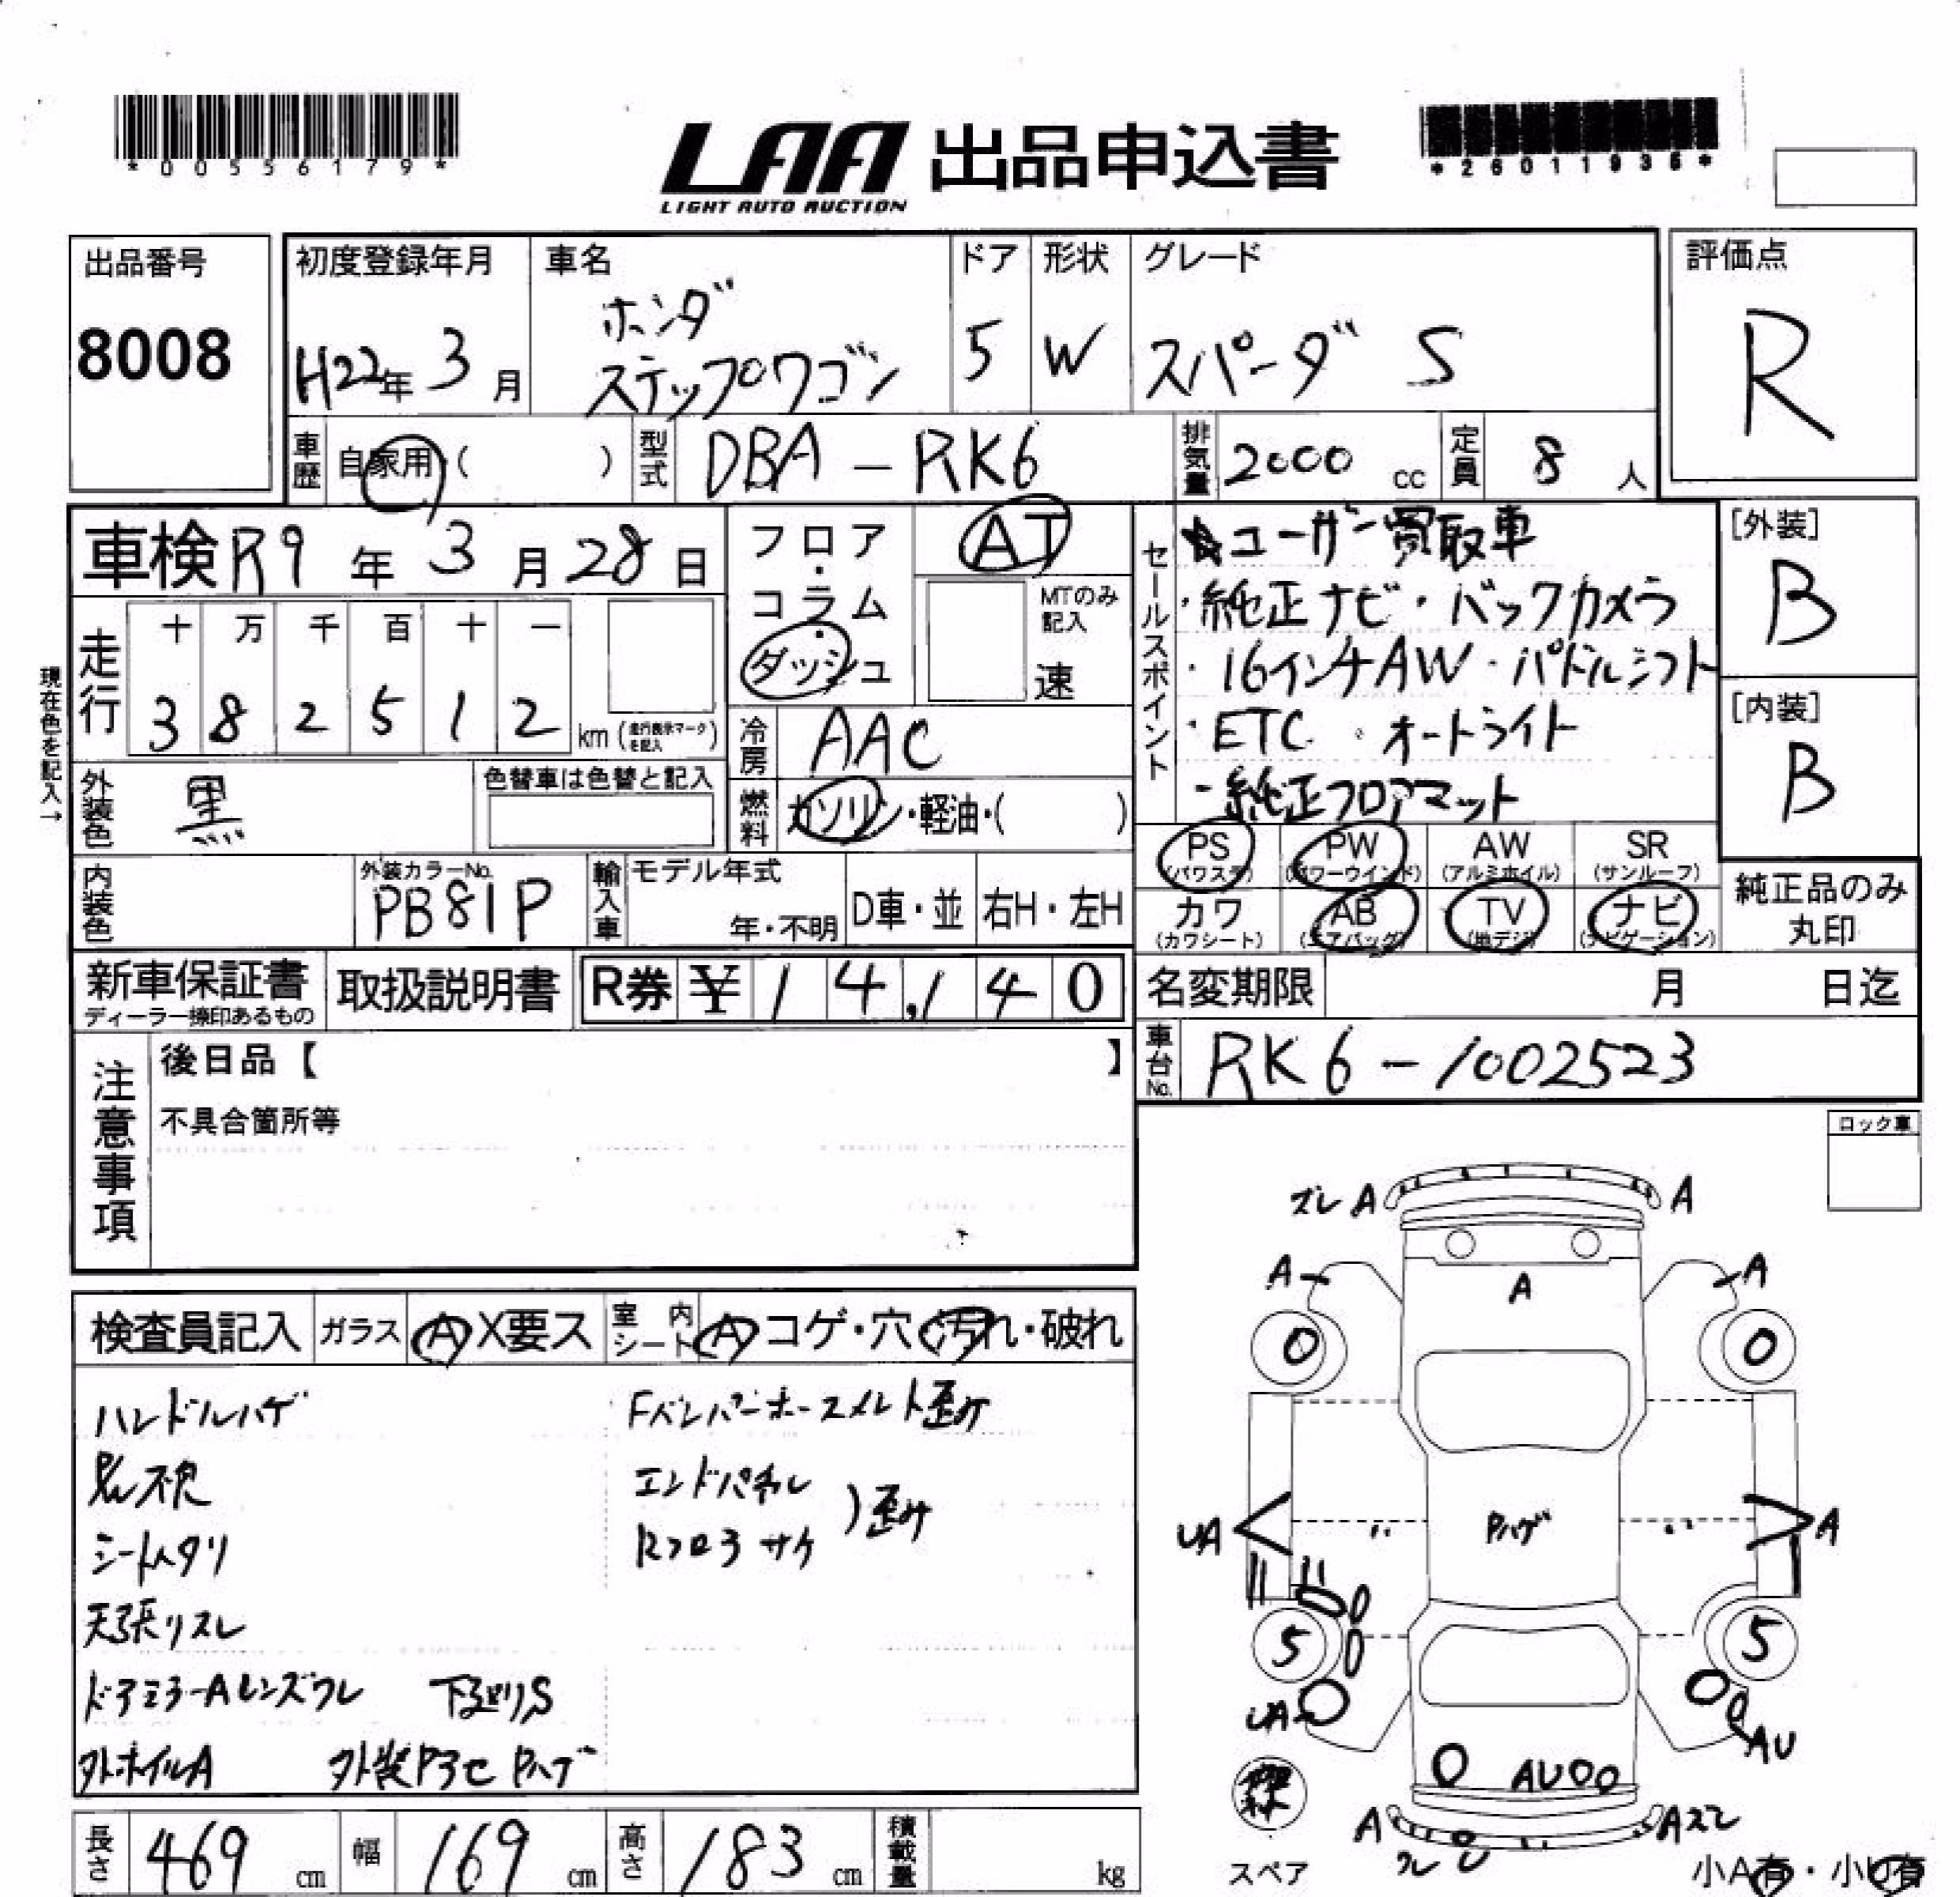 *00556179*
LAA 出品申込書
LIGHT AUTO AUCTION
*26011935*
出品番号
8008
初度登録年月
H22年 3月
車名
ホンダ
ステップワゴン
ドア
5
形状
W
グレード
スパーダ S
評価点
R
車歴 自家用・( )
型式 DBA-RK6
排気量 2000 cc
定員 8 人
車検 R9年 3月 28日
走行
十 万 千 百 十 一
3 8 2 5 1 2 km (走行表示マークを記入)
現在色を記入→
フロア・コラム・ダッシュ
AT
MTのみ記入
速
冷房 AAC
燃料 ガソリン・軽油・( )
セールスポイント
☆ユーザー買取車
・純正ナビ・バックカメラ
・16インチAW・パドルシフト
・ETC・オートライト
・純正フロアマット
[外装]
B
[内装]
B
外装色 黒
色替車は色替と記入
内装色
外装カラーNo.
PB81P
輸入車 モデル年式
年・不明
D車・並
右H・左H
PS (パワステ)
PW (パワーウインド)
AW (アルミホイル)
SR (サンルーフ)
カワ (カワシート)
AB (エアバッグ)
TV (地デジ)
ナビ (ナビゲーション)
純正品のみ
丸印
新車保証書
ディーラー捺印あるもの
取扱説明書
R券 ¥ 14,140
名変期限 月 日迄
車台No. RK6-1002523
注意事項
後日品【 】
不具合箇所等
ロック車
検査員記入 ガラス A X要ス 室内シート A コゲ・穴・汚れ・破れ
ハンドルハゲ
シートヘタリ
天張リスレ
ドアミラーAレンズワレ 下廻りS
外ホイルA
Fバンパーホースメント歪み
エンドパネル
Rフロア サケ
)歪み
ズレ A A
A A
A
0 0
UA Pハゲ A
5 5
UA AU
AU
A Aズレ
ワレ
スペア
小A有・小U有
長さ 469 cm
幅 169 cm
高さ 183 cm
積載量 kg